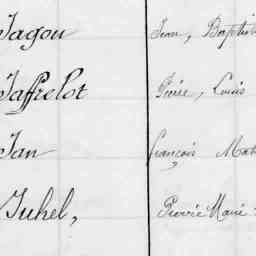 Jagou Jean, Baptist
Jaffrelot Pierre, Louis
Jan françois Mat
Juhel, Pierre Marie